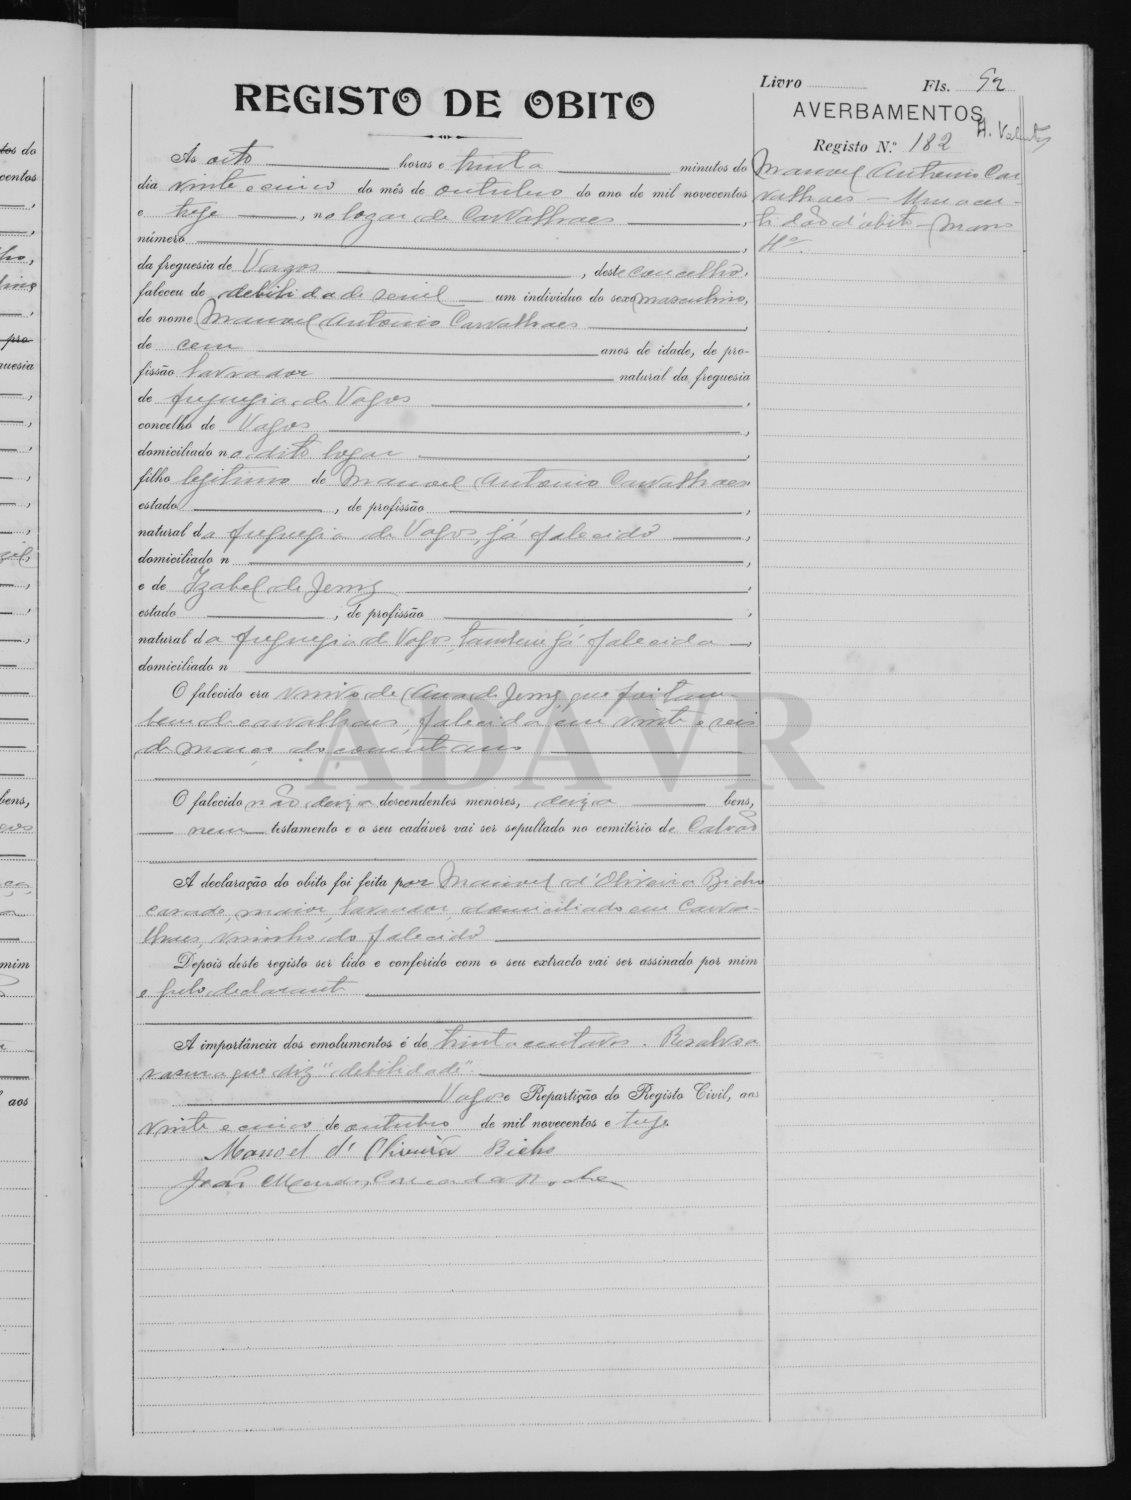 Livro Fls. 92
REGISTO DE OBITO
AVERBAMENTOS
Registo N.º 182
Manuel Antonio Car-
valhaes - Uma cer-
tidão d'obito -
Ás oito horas e trinta minutos do
dia vinte e cinco do mês de outubro do ano de mil novecentos
e treze, no logar de Carvalhaes,
número,
da freguesia de Vagos, deste concelho,
faleceu de debilidade senil um individuo do sexo masculino,
de nome Manuel Antonio Carvalhaes,
de cem anos de idade, de pro-
fissão lavrador natural da freguesia
de freguesia de Vagos,
concelho de Vagos,
domiciliado no dito logar,
filho legitimo de Manuel Antonio Carvalhaes
estado, de profissão,
natural da freguesia de Vagos, já falecido,
domiciliado n,
e de Izabel de Jesus,
estado, de profissão,
natural da freguesia de Vagos tambem já falecida,
domiciliado n
O falecido era viuvo de Ana de Jesus, que foi tam-
bem de carvalhaes, falecida em vinte e seis
de março do corrente ano
O falecido não deixa descendentes menores, deixa bens,
nem testamento e o seu cadáver vai ser sepultado no cemitério de Calvão
A declaração do obito foi feita por Manuel d'Oliveira Bicho
casado, maior, lavrador, domiciliado em Carva-
lhaes, visinho do falecido
Depois deste registo ser lido e conferido com o seu extracto vai ser assinado por mim
e pelo declarante
A importância dos emolumentos é de trinta centavos. Resalvo a
rasura que diz "debilidade".
Vagos e Repartição do Registo Civil, aos
vinte e cinco de outubro de mil novecentos e treze
Manoel d'Oliveira Bicho
João
ADAVR